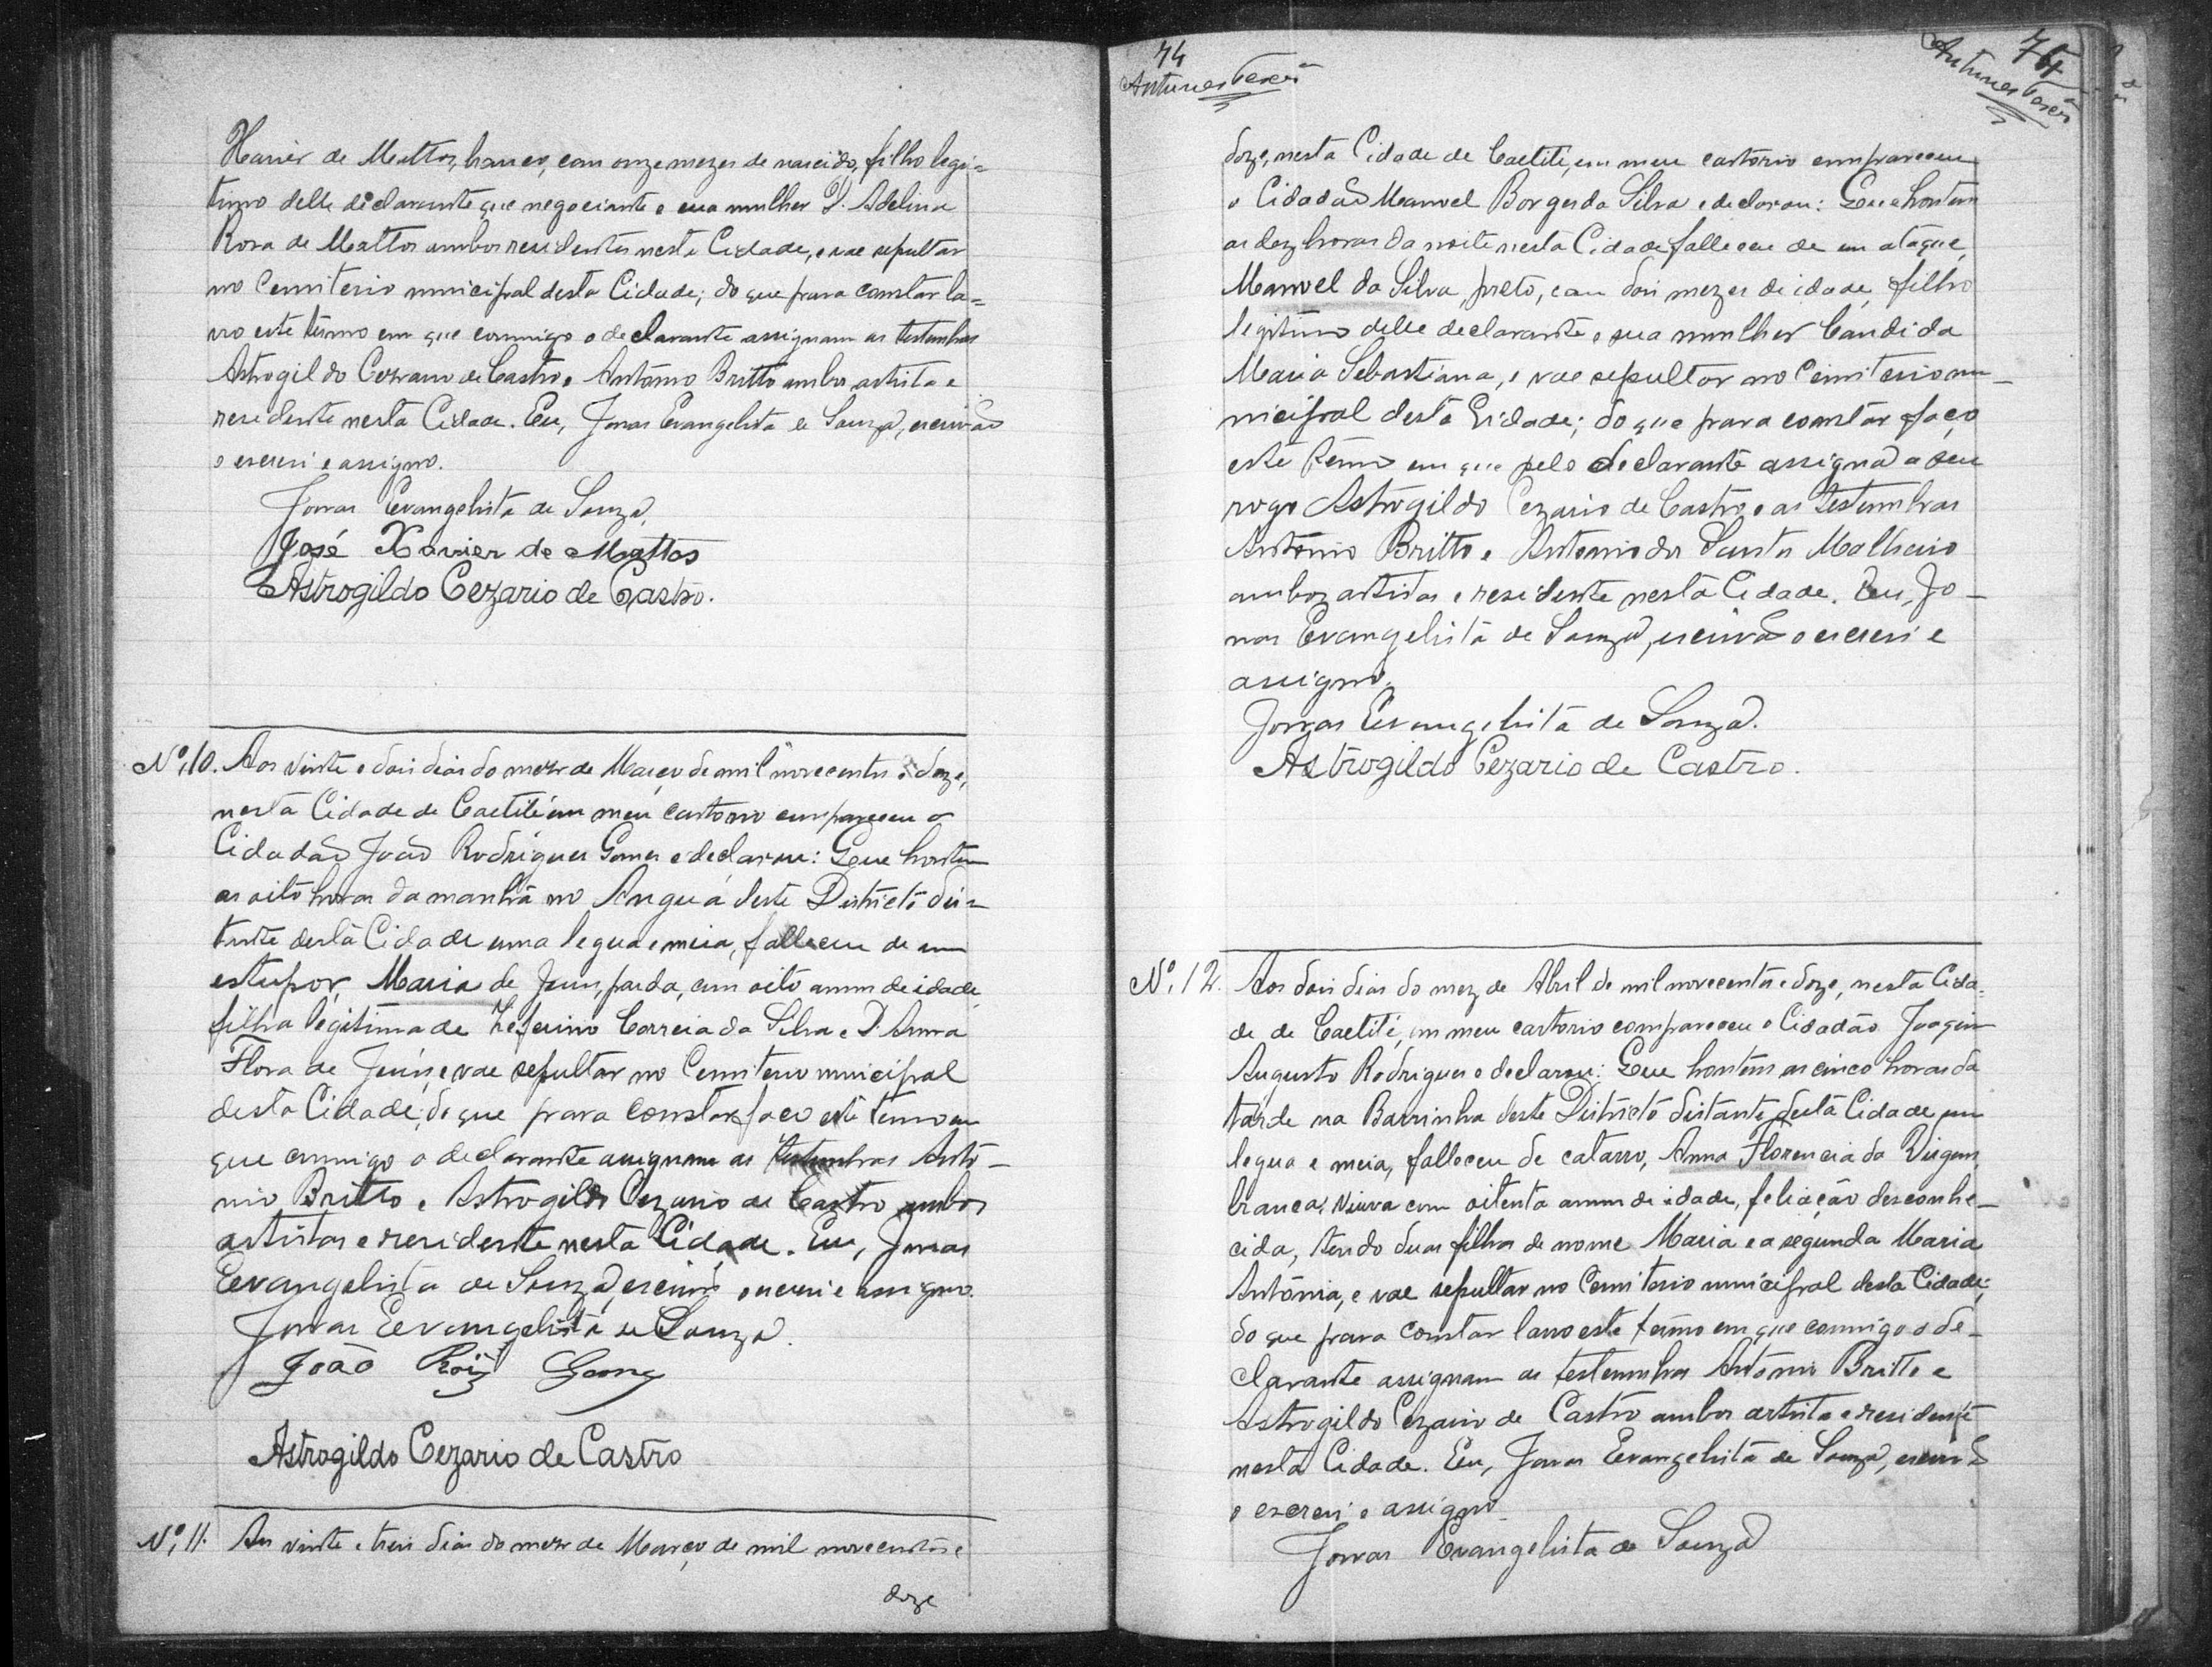 Xavier de Mattos, branco, com onze mezes de nascido, filho legi=
timo delle declarante que negociante e sua mulher D. Adelina
Rosa de Mattos ambos residentes nesta Cidade, e vae sepultar
no Cemiterio municipal desta Cidade; do que para constar la=
vro este termo em que commigo o declarante assignam as testunhas
Astrogildo Cezario de Castro e Antonio Britto ambos artista e
residente nesta Cidade. Eu, Jonas Evangelista de Souza, escrivão
o escrevi e assigno.
Jonas Evangelista de Souza.
José Xavier de Mattos
Astrogildo Cezario de Castro.
Nº 10. Aos vinte e dois dias do mez de Março de mil novecentos e doze,
nesta Cidade de Caetité em meu cartorio compareceu o
Cidadão João Rodrigues Gomes e declarou: Que hontem
as oito horas da manhã no Anguá deste Districto dis=
tante desta Cidade uma legua e meia, falleceu de um
estupor, Maria de Jesus, parda, com oito annos de idade,
filha legitima de Zeferino Correia da Silva e D. Anna
Flora de Jesus, e vae sepultar no Cemiterio municipal
desta Cidade; do que para constar faço este termo em
que commigo o declarante assignam as testunhas Anto-
nio Britto e Astrogildo Cezario de Castro ambos
artistas e residente nesta Cidade. Eu, Jonas
Evangelista de Souza, escrivão o escrevi e assigno.
Jonas Evangelista de Souza.
João Roiz Gomes
Astrogildo Cezario de Castro
Nº 11. Aos vinte e treis dias do mez de Março de mil novecentos e
doze
74
Antunes
74
Antunes
doze, nesta Cidade de Caetité, em meu cartorio compareceu
o Cidadão Manoel Borges da Silva e declarou: Que hontem
as dez horas da noite nesta Cidade falleceu de um ataque,
Manoel da Silva, preto, com dois mezes de idade, filho
legitimo delle declarante e sua mulher Candida
Maria Sebastiana, e vae sepultar no Cemiterio mu-
nicipal desta Cidade; do que para constar faço
este termo em que pelo declarante assigna a seu
rogo Astrogildo Cezario de Castro e as testunhas
Antonio Britto e Antonio dos Santos Malheiro
ambos artistas e residente nesta Cidade. Eu, Jo-
nas Evangelista de Souza, escrivão o escrevi e
assigno.
Jonas Evangelista de Souza.
Astrogildo Cezario de Castro.
Nº 12. Aos dois dias do mez de Abril de mil novecentos e doze, nesta Cida=
de de Caetité, em meu cartorio compareceu o Cidadão Joaquim
Augusto Rodrigues e declarou: Que hontem as cinco horas da
tarde na Barrinha deste Districto distante desta Cidade um
legua e meia, falleceu de catarro, Anna Florencia da Virgem,
branca, viuva com oitenta annos de idade, feliação desconhe-
cida, tendo duas filhas de nome Maria e a segunda Maria
Antonia, e vae sepultar no Cemiterio municipal desta Cidade;
do que para constar lavro este termo em que commigo o de-
clarante assignam as testemunhas Antonio Britto e
Astrogildo Cezario de Castro ambos artista e residente
nesta Cidade. Eu, Jonas Evangelista de Souza, escrivão
o escrevi e assigno.
Jonas Evangelista de Souza